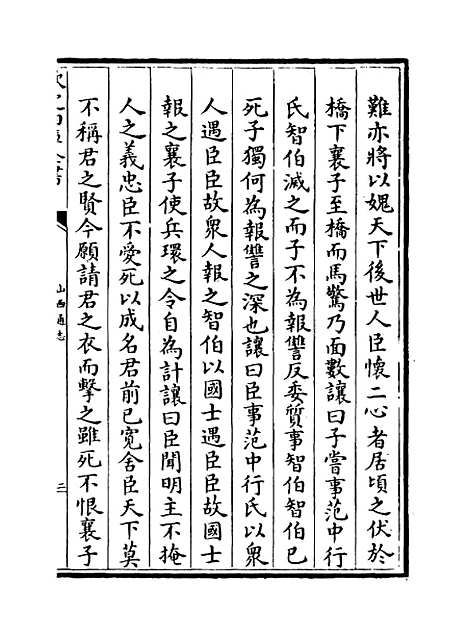 難亦將以媿天下後世人臣懷二心者居頃之伏於
橋下襄子至橋而馬驚乃面數讓曰子嘗事范中行
氏智伯滅之而子不為報讐反委質事智伯智伯已
死子獨何為報讐之深也讓曰臣事范中行氏以衆
人遇臣臣故衆人報之智伯以國士遇臣臣故國士
報之襄子使兵環之令自為計讓曰臣聞明主不掩
人之義忠臣不愛死以成名君前已寛舍臣天下莫
不稱君之賢今願請君之衣而擊之雖死不恨襄子
山西通志
三